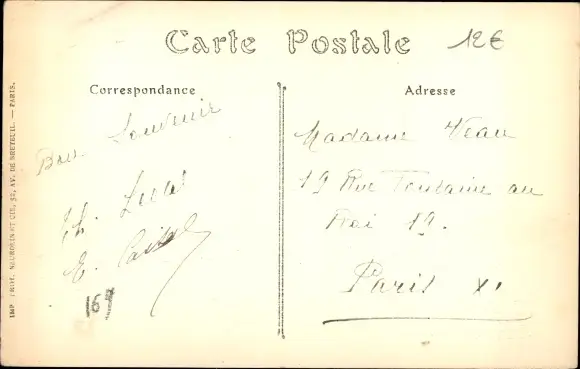 Carte Postale
12€
Correspondance
Bon Souvenir
Ch. Lucas
E.
167
Adresse
Madame Veau
19 Rue Fontaine au
Roi 19.
Paris XI
IMP. PHOT. NEURDEIN ET CIE, 52, AV. DE BRETEUIL. — PARIS.